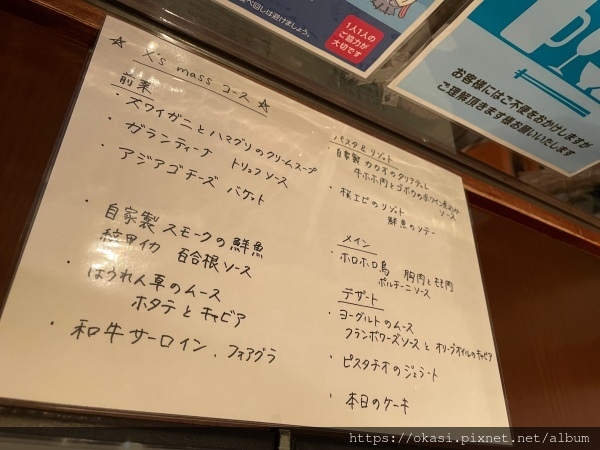 食べ回しは避けましょう。
1人1人の
ご協力が
大切です
お客様にはご不便をおかけしますが
ご理解頂きます様お願いいたします
☆ X's mass コース ☆
前菜
・ズワイガニとハマグリのクリームスープ
・ガランティーナ トリュフソース
・アジアゴチーズ バゲット
・自家製スモークの鮮魚
紋甲イカ 百合根ソース
・ほうれん草のムース
ホタテとキャビア
・和牛サーロイン、フォアグラ
パスタ&リゾット
自家製カカオのタリアテッレ
牛ホホ肉とゴボウの赤ワイン煮込み
ソース
・桜エビのリゾット
鮮魚のソテー
メイン
・ホロホロ鳥 胸肉とモモ肉
ポルチーニソース
デザート
・ヨーグルトのムース
フランボワーズソースとオリーブオイルのキャビア
・ピスタチオのジェラート
・本日のケーキ
https://okasi.pixnet.net/album